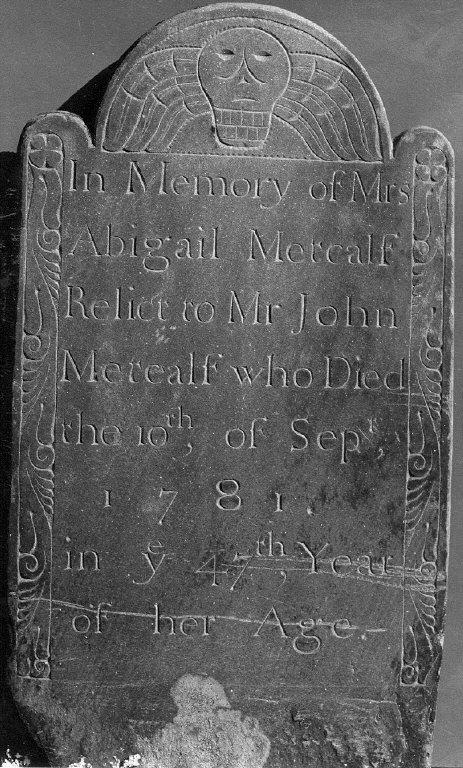 In Memory of Mrs
Abigail Metcalf
Relict to Mr John
Metcalf who Died
the 10th, of Sept,
1781.
in ye 47th, Year
of her Age.